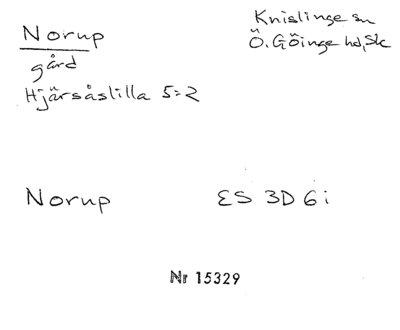 Norup
gård
Hjärsåslilla 5:2
Knislinge sn
Ö. Göinge hd, Sk
Norup
ES 3D 6i
Nr 15329